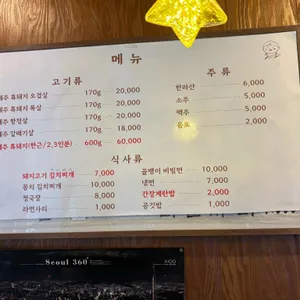 메뉴
고기류
제주 흑돼지 오겹살 170g 20,000
제주 흑돼지 목살 170g 20,000
제주 항정살 170g 20,000
제주 갈매기살 170g 18,000
제주 흑돼지(한근/2,3인분) 600g 60,000
주류
한라산 6,000
소주 5,000
맥주 5,000
음료 2,000
식사류
돼지고기 김치찌개 7,000
꽁치 김치찌개 10,000
청국장 8,000
라면사리 1,000
골뱅이 비빔면 10,000
냉면 7,000
간장계란밥 2,000
공기밥 1,000
Seoul 360°